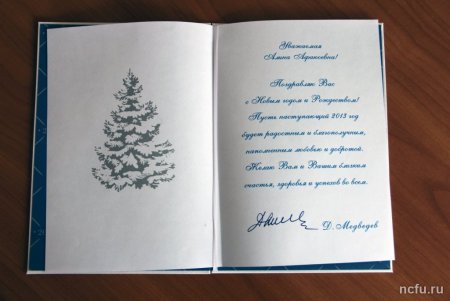 Уважаемая
Алина Афаксевна!
Поздравляю Вас
с Новым годом и Рождеством!
Пусть наступающий 2013 год
будет радостным и благополучным,
наполненным любовью и добротой.
Желаю Вам и Вашим близким
счастья, здоровья и успехов во всем.
Д. Медведев
ncfu.ru